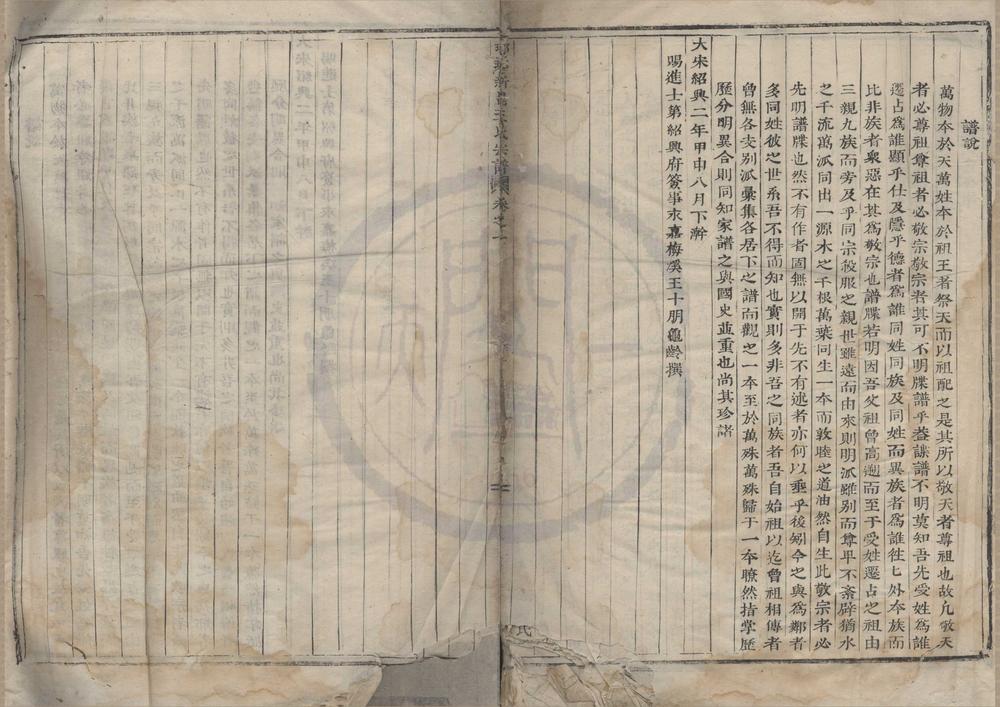 譜說
萬物本於天萬姓本於祖王者祭天而以祖配之是其所以敬天者尊祖也故凡敬天
者必尊祖尊祖者必敬宗敬宗者其可不明牒譜乎蓋譜不明莫知吾先受姓為誰
遷占為誰顯乎仕及隱乎德者為誰同姓同族及同姓而異族者為誰往七外本族而
比非族者衆惡在其為敬宗也譜牒若明因吾父祖曾高遡而至于受姓遷占之祖由
三親九族而旁及乎同宗袒服之親世雖遠而由來則明派雖別而尊卑不紊辟猶水
之千流萬派同出一源木之千根萬葉同生一本而敦睦之道油然自生此敬宗者必
先明譜牒也然不有作者固無以開于先不有述者亦何以垂乎後矧今之與為鄰者
多同姓彼之世系吾不得而知也實則多非吾之同族者吾自始祖以迄曾祖相傳者
曾無各支別派彙集各居下之譜而觀之一本至於萬殊萬殊歸于一本瞭然指掌歷
歷分明異合則同知家譜之與國史並重也尚其珍諸
大宋紹興二年甲申八月下澣
賜進士第紹興府簽事永嘉梅溪王十朋龜齡撰
王氏宗譜 卷之一